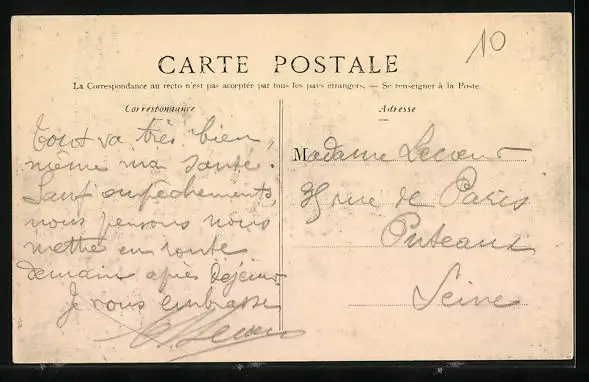 10
CARTE POSTALE
La Correspondance au recto n'est pas acceptée par tous les pays étrangers. — Se renseigner à la Poste.
Correspondance
Adresse
Tout va très bien,
même ma santé.
Sauf empêchements,
nous pensons nous
mettre en route
demain après déjeuner
Je vous embrasse
Madame
rue de Paris
Puteaux
Seine